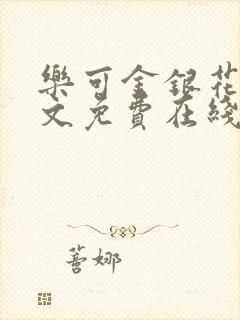 樂可金銀花
文免費在綫
蓍娜